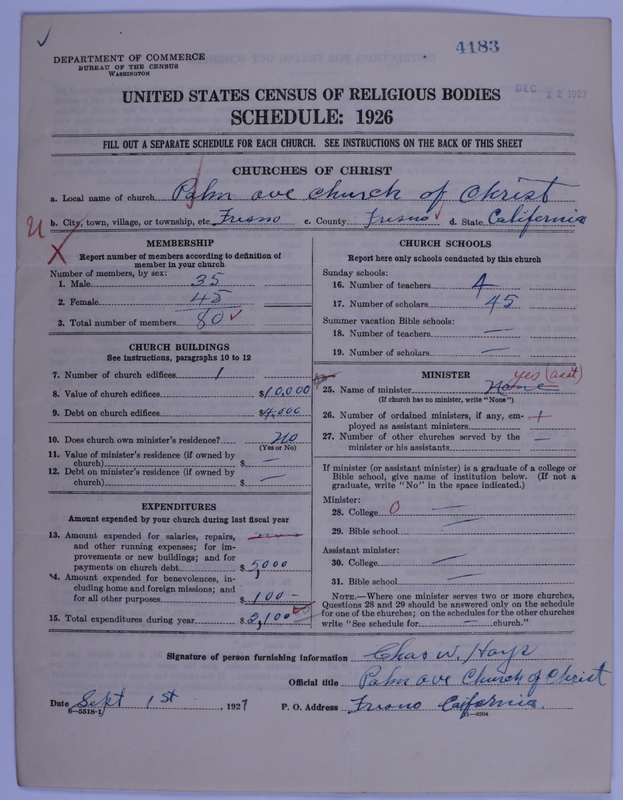 4183
DEPARTMENT OF COMMERCE
BUREAU OF THE CENSUS
WASHINGTON
DEC 22 1927
UNITED STATES CENSUS OF RELIGIOUS BODIES
SCHEDULE: 1926
FILL OUT A SEPARATE SCHEDULE FOR EACH CHURCH. SEE INSTRUCTIONS ON THE BACK OF THIS SHEET
CHURCHES OF CHRIST
a. Local name of church Palm ave church of Christ
b. City, town, village, or township, etc. Fresno c. County Fresno d. State California
MEMBERSHIP
Report number of members according to definition of
member in your church
Number of members, by sex:
1. Male 35
2. Female 45
3. Total number of members 80
CHURCH BUILDINGS
See instructions, paragraphs 10 to 12
7. Number of church edifices 1
8. Value of church edifices $10,000
9. Debt on church edifices $4,000
10. Does church own minister's residence? no
(Yes or No)
11. Value of minister's residence (if owned by
church) $ —
12. Debt on minister's residence (if owned by
church) $ —
EXPENDITURES
Amount expended by your church during last fiscal year
13. Amount expended for salaries, repairs,
and other running expenses; for im-
provements or new buildings; and for
payments on church debt $ 5,000
14. Amount expended for benevolences, in-
cluding home and foreign missions; and
for all other purposes $ 100 -
15. Total expenditures during year $ 2,100
CHURCH SCHOOLS
Report here only schools conducted by this church
Sunday schools:
16. Number of teachers 4
17. Number of scholars 45
Summer vacation Bible schools:
18. Number of teachers —
19. Number of scholars —
MINISTER
yes (asst)
25. Name of minister None
(If church has no minister, write "None")
26. Number of ordained ministers, if any, em-
ployed as assistant ministers
27. Number of other churches served by the
minister or his assistants —
If minister (or assistant minister) is a graduate of a college or
Bible school, give name of institution below. (If not a
graduate, write "No" in the space indicated.)
Minister:
28. College 0 —
29. Bible school —
Assistant minister:
30. College —
31. Bible school —
NOTE.—Where one minister serves two or more churches,
Questions 28 and 29 should be answered only on the schedule
for one of the churches; on the schedules for the other churches
write "See schedule for — church."
Signature of person furnishing information Chas W. Hays
Official title Palm ave Church of Christ
Date Sept 1st, 1927 P. O. Address Fresno California.
8—5518-1
11—9204